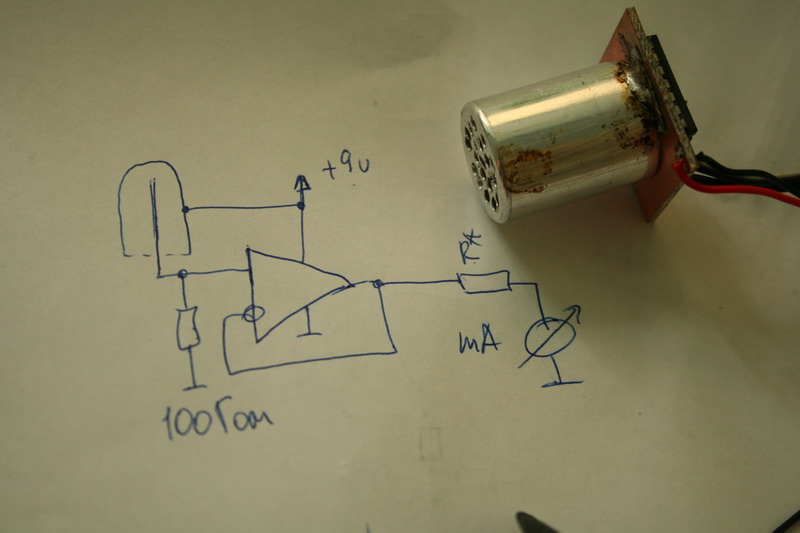 +9v
R*
mA
100Гом